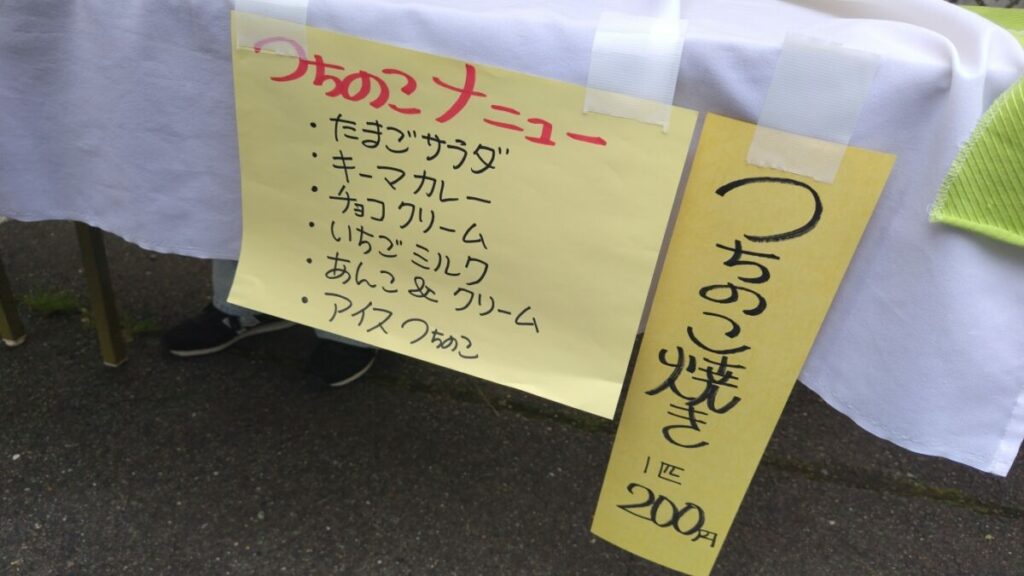 つちのこメニュー
・たまごサラダ
・キーマカレー
・チョコクリーム
・いちごミルク
・あんこ&クリーム
・アイスつちのこ
つちのこ焼き
1匹
200円